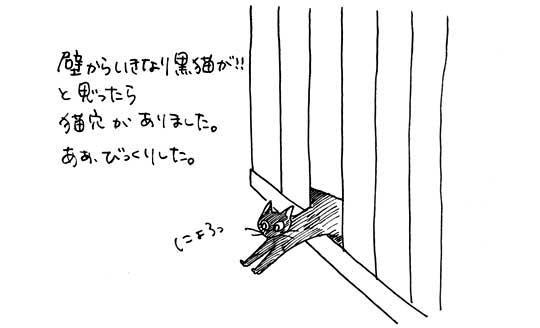 壁からいきなり黒猫が!!
と思ったら
猫穴がありました。
ああ、びっくりした。
にょろっ